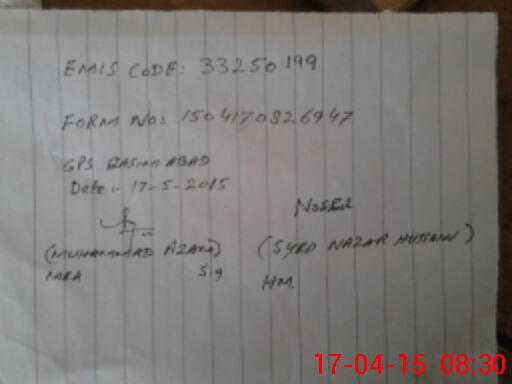 EMIS CODE: 33250199
FORM NO: 1504170826947
GPS QASIM ABAD
Date:- 17-5-2015
(MUHAMMAD AZAM)
(SYED NAZAR HUSSAIN)
HM
17-04-15 08:30